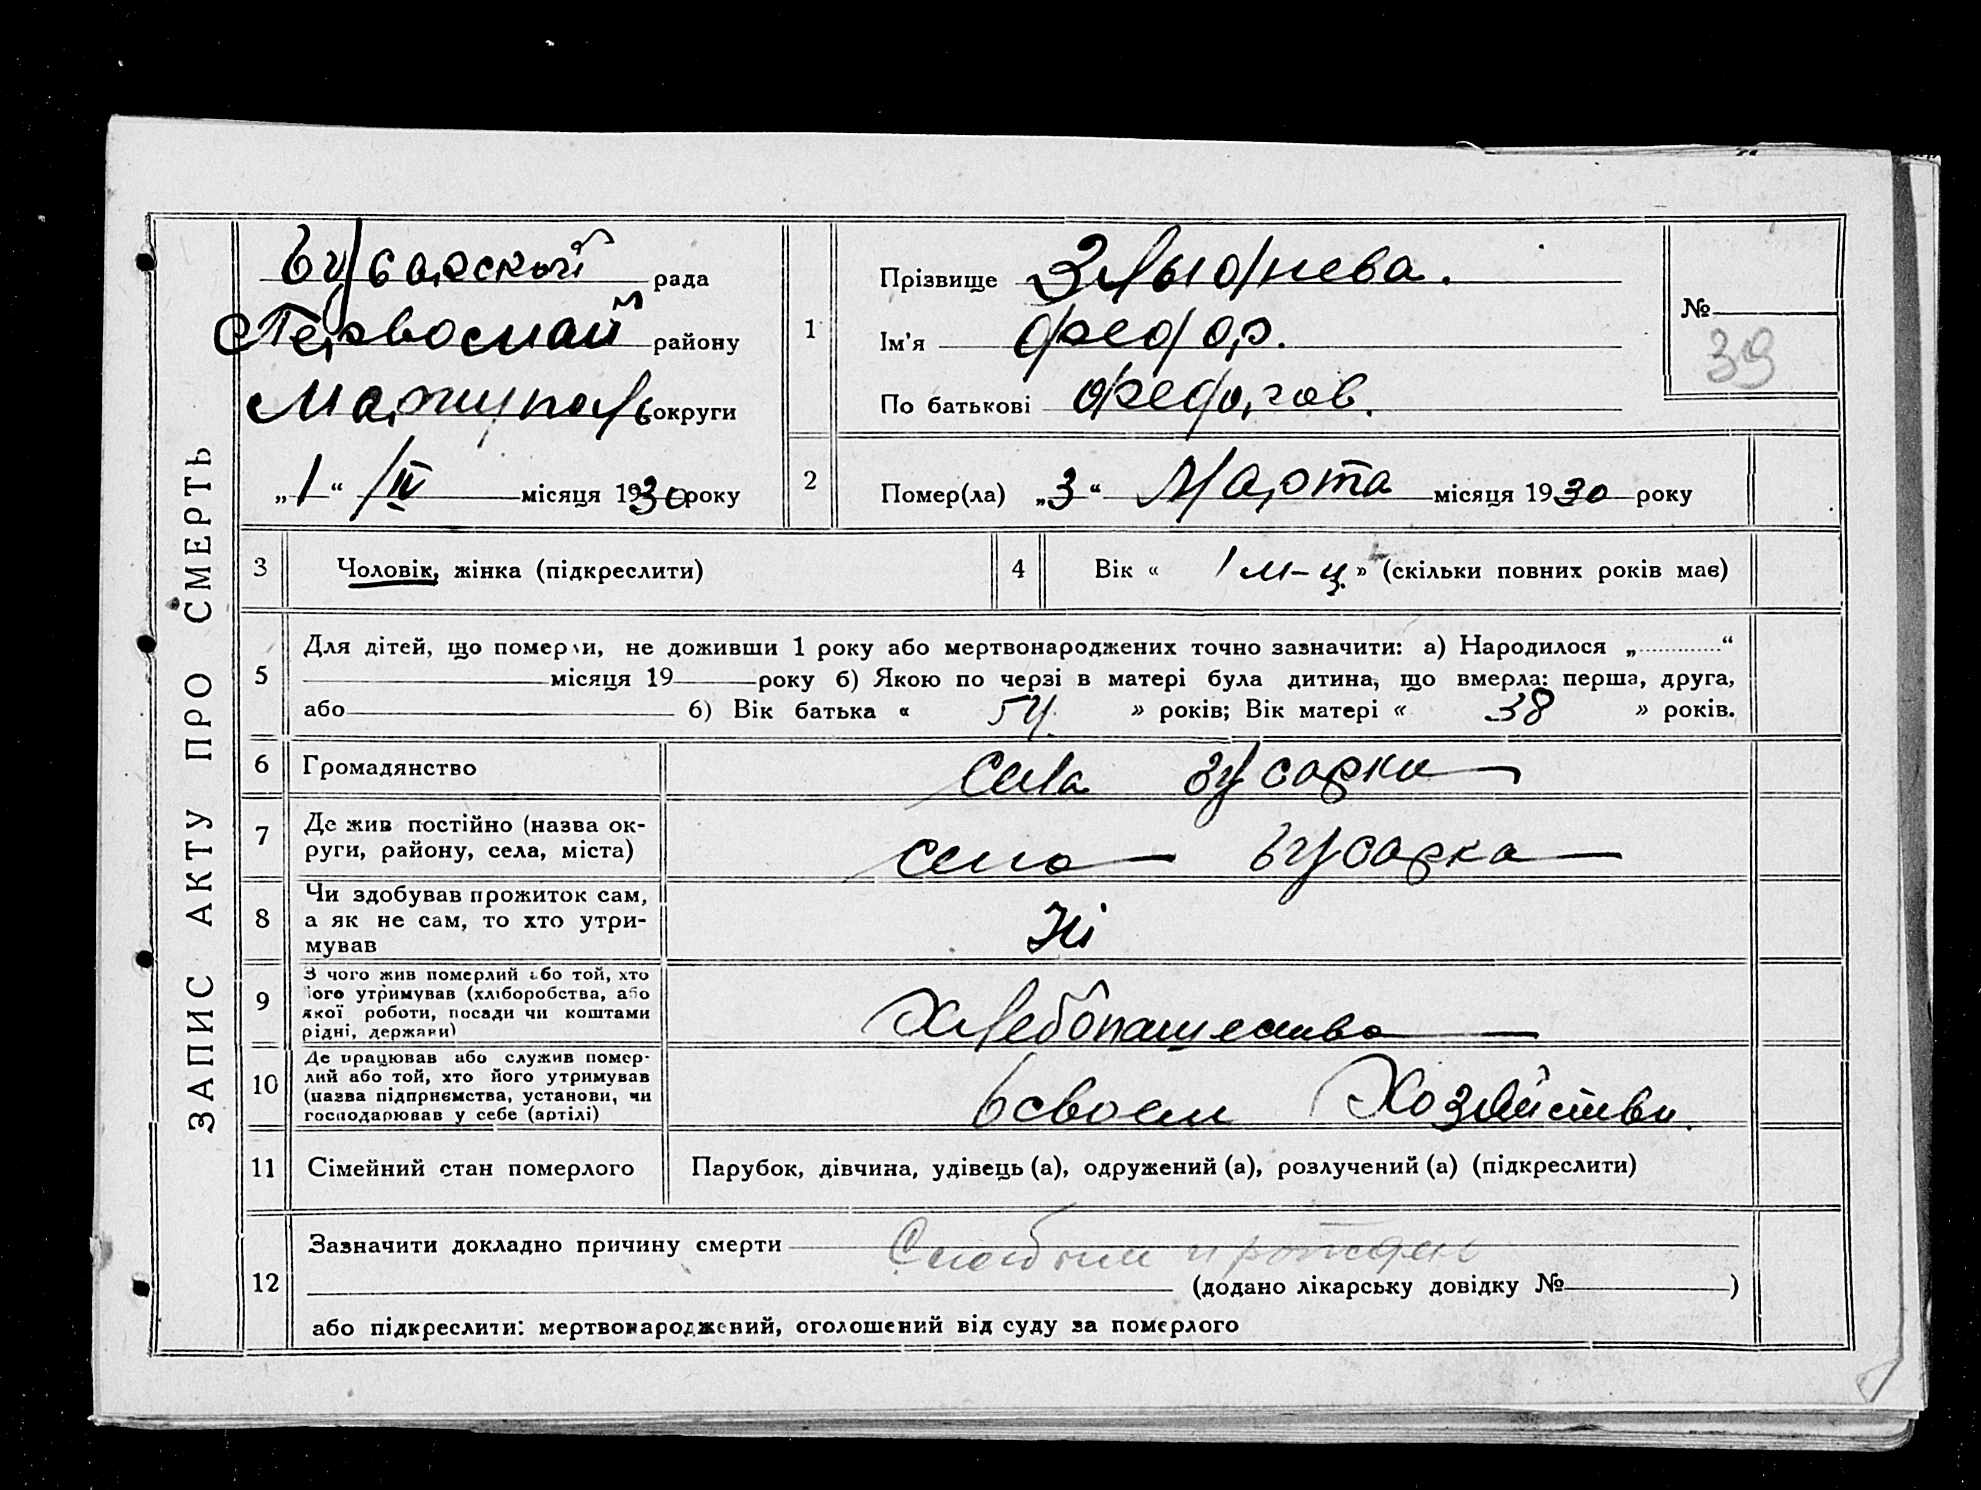 ЗАПИС АКТУ ПРО СМЕРТЬ
рада
Первомай м району
Мариуполь округи
„1“ IV місяця 1930 року
1
Прізвище
Ім'я Федор.
По батькові Федоров.
№
39
2
Помер(ла) „3“ Марта місяця 1930 року
3 Чоловік, жінка (підкреслити)
4 Вік « 1 м-ц » (скільки повних років має)
5 Для дітей, що померли, не доживши 1 року або мертвонароджених точно зазначити: а) Народилося „ “
місяця 19 року б) Якою по черзі в матері була дитина, що вмерла: перша, друга,
або б) Вік батька « » років; Вік матері « 38 » років.
6 Громадянство села
7 Де жив постійно (назва ок-
руги, району, села, міста) село
8 Чи здобував прожиток сам,
а як не сам, то хто утри-
мував
Ні
9 З чого жив померлий або той, хто
його утримував (хліборобства, або
якої роботи, посади чи коштами
рідні, держави)
Хлебопашество
10 Де працював або служив помер-
лий або той, хто його утримував
(назва підприємства, установи, чи
господарював у себе (артілі)
в своем Хозяйстви.
11 Сімейний стан померлого Парубок, дівчина, удівець (а), одружений (а), розлучений (а) (підкреслити)
12 Зазначити докладно причину смерти
(додано лікарську довідку № )
або підкреслити: мертвонароджений, оголошений від суду за померлого